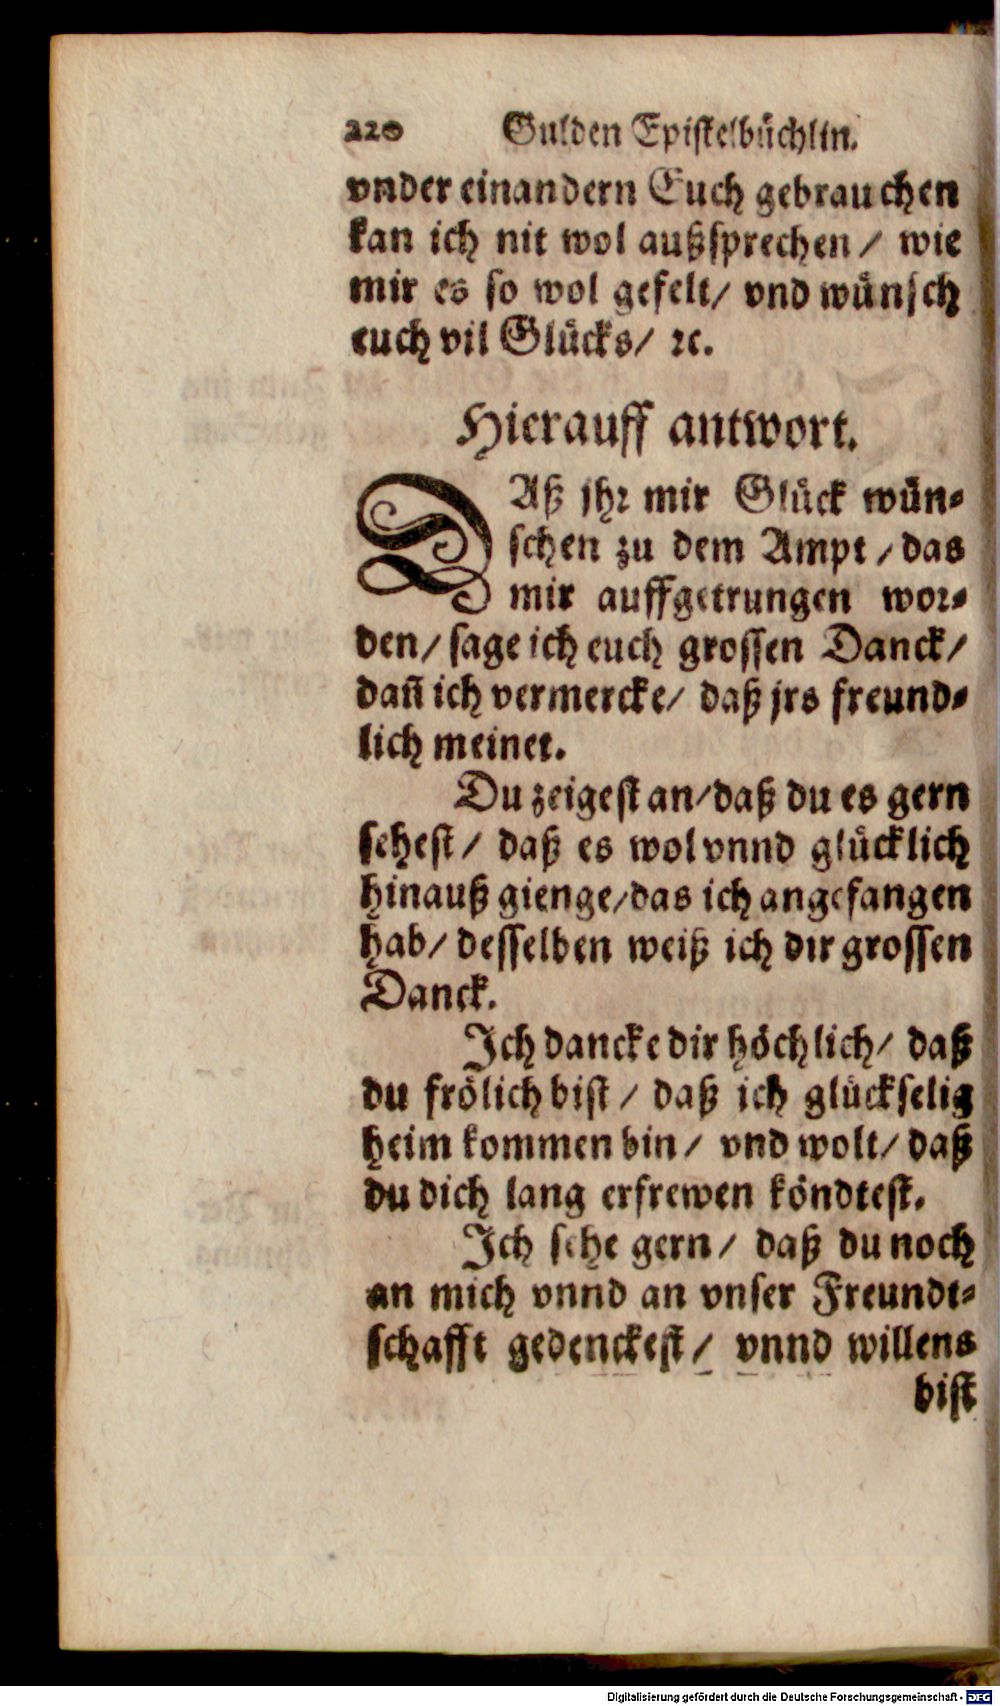 220 Gulden Epistelbüchlin.
vnder einandern Euch gebrauchen
kan ich nit wol außsprechen / wie
mir es so wol gefelt / vnd wünsch
euch vil Glücks / ꝛc.
Hierauff antwort.
DAß jhr mir Glück wün⸗
schen zu dem Ampt / das
mir auffgetrungen wor⸗
den / sage ich euch grossen Danck /
dañ ich vermercke / daß jrs freund⸗
lich meinet.
Du zeigest an / daß du es gern
sehest / daß es wol vnnd glücklich
hinauß gienge / das ich angefangen
hab / desselben weiß ich dir grossen
Danck.
Ich dancke dir höchlich / daß
du frölich bist / daß ich glückselig
heim kommen bin / vnd wolt / daß
du dich lang erfrewen köndtest.
Ich sehe gern / daß du noch
an mich vnnd an vnser Freundt⸗
schafft gedenckest / vnnd willens
bist
Digitalisierung gefördert durch die Deutsche Forschungsgemeinschaft - DFG